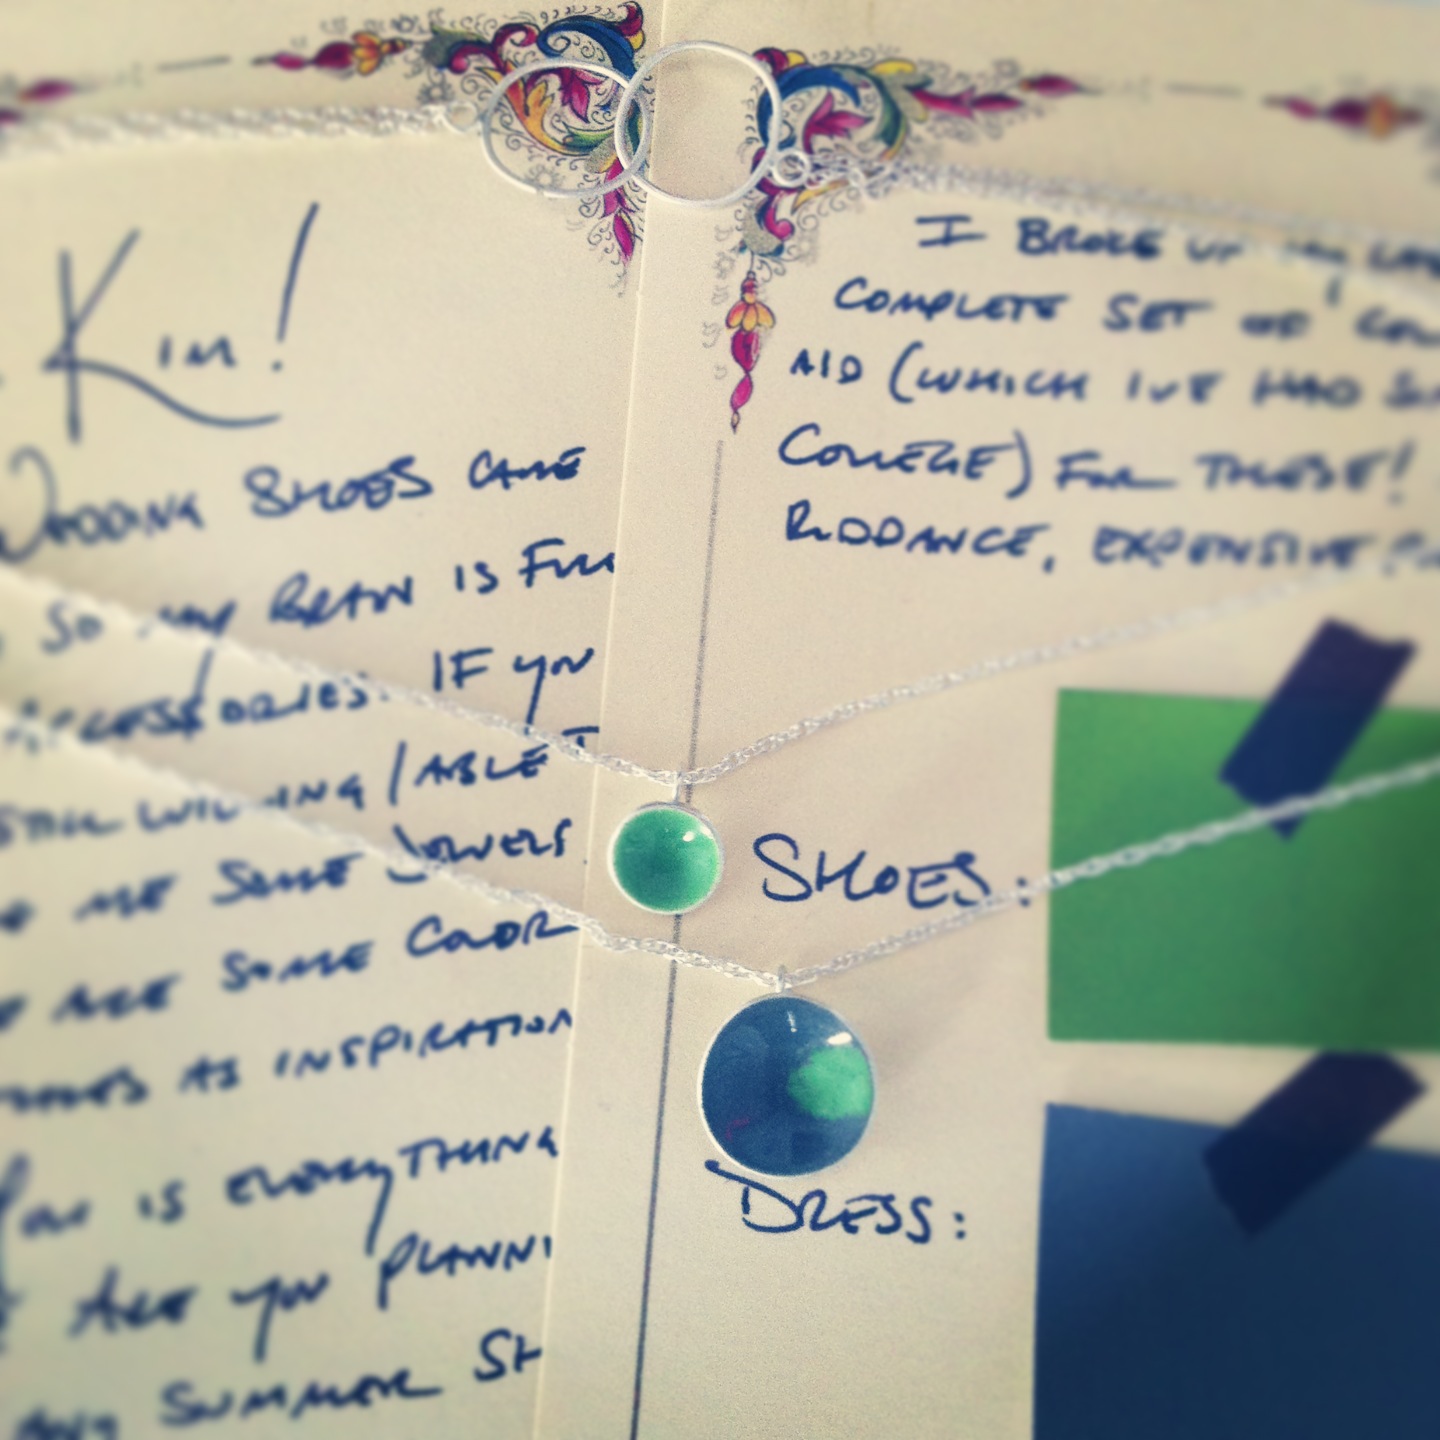 Kim!
WEDDING SHOES CAME
SO MY BRAIN IS FULL
ACCESSORIES. IF YOU
STILL WILLING / ABLE T
ME SOME JEWELS
ARE SOME COLOR
AS INSPIRATION
IS EVERYTHING
ARE YOU PLANNI
ANY SUMMER SH
I BROKE UP MY LAST
COMPLETE SET OF COL
AID (WHICH I'VE HAD SIN
COLLEGE) FOR THESE!
RIDDANCE, EXPENSIVE
SHOES:
DRESS: